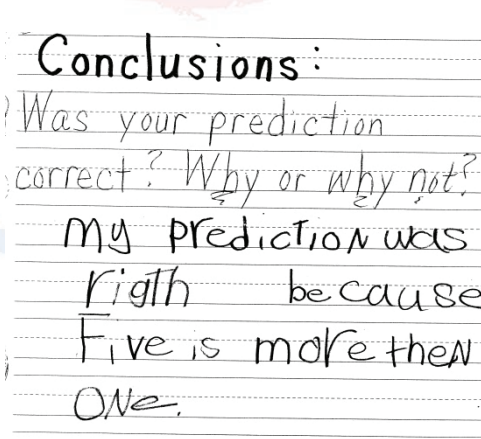 Conclusions:
Was your prediction
correct? Why or why not?
my prediction was
rigth because
Five is more then
one.